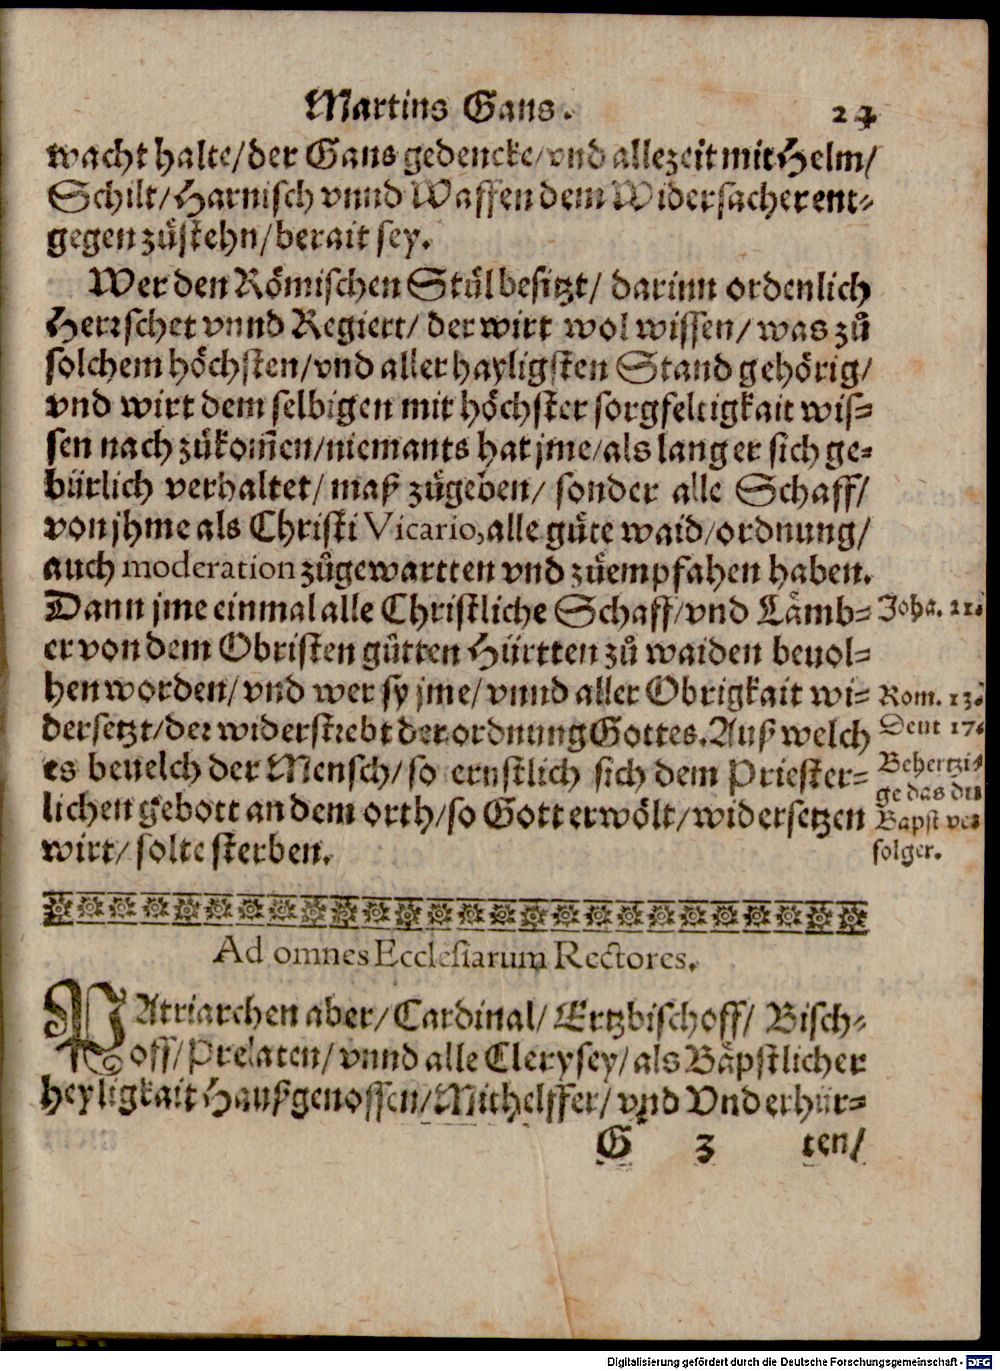 Martins Gans. 24
wacht halte/der Gans gedencke/vnd allezeit mit Helm/
Schilt/Harnisch vnnd Waffen dem Widersacher ent-
gegen zůstehn/berait sey.
Wer den Römischen Stůl besitzt/ darinn ordenlich
Herrschet vnnd Regiert/ der wirt wol wissen/ was zů
solchem höchsten/vnd aller hayligsten Stand gehörig/
vnd wirt dem selbigen mit höchster sorgfeltigkait wis-
sen nach zůkom̃en/niemants hat jme/als lang er sich ge-
bürlich verhaltet/ maß zůgeben/ sonder alle Schaff/
von jhme als Christi Vicario, alle gůte waid/ordnung/
auch moderation zůgewartten vnd zůempfahen haben.
Dann jme einmal alle Christliche Schaff/vnd Lämb- Joha. 21.
er von dem Obristen gůtten Hürtten zů waiden beuol-
hen worden/ vnd wer sy jme/ vnnd aller Obrigkait wi- Rom. 13.
dersetzt/der widerstrebt der ordnung Gottes. Auß welch Deut 17.
es beuelch der Mensch/so ernstlich sich dem Priester- Behertzi-
ge das du
lichen gebott an dem orth/so Gott erwölt/widersetzen Bapst ver
wirt/ solte sterben. folger.
Ad omnes Ecclesiarum Rectores.
PAtriarchen aber/ Cardinal/ Ertzbischoff/ Bisch-
off/ Prelaten/ vnnd alle Clerysey/als Bäpstlicher
heyligkait Haußgenossen/Mithelffer/ vnd Vnderhür-
G 3 ten/
Digitalisierung gefördert durch die Deutsche Forschungsgemeinschaft - DFG